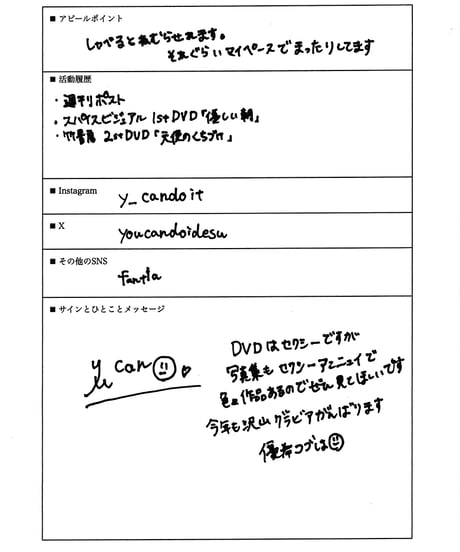 ■ アピールポイント
しゃべるとねむらせれます。
それぐらいマイペースでまったりしてます
■ 活動履歴
・週刊ポスト
・スパイスビジュアル 1stDVD「優しい朝」
・竹書房 2stDVD「天使のくちづけ」
■ Instagram
y_candoit
■ X
youcandoidesu
■ その他のSNS
fantia
■ サインとひとことメッセージ
yu can
DVDはセクシーですが
写真集もセクシーアンニュイで
色々作品あるのでぜひ見てほしいです
今年も沢山グラビアがんばります
優希コブは